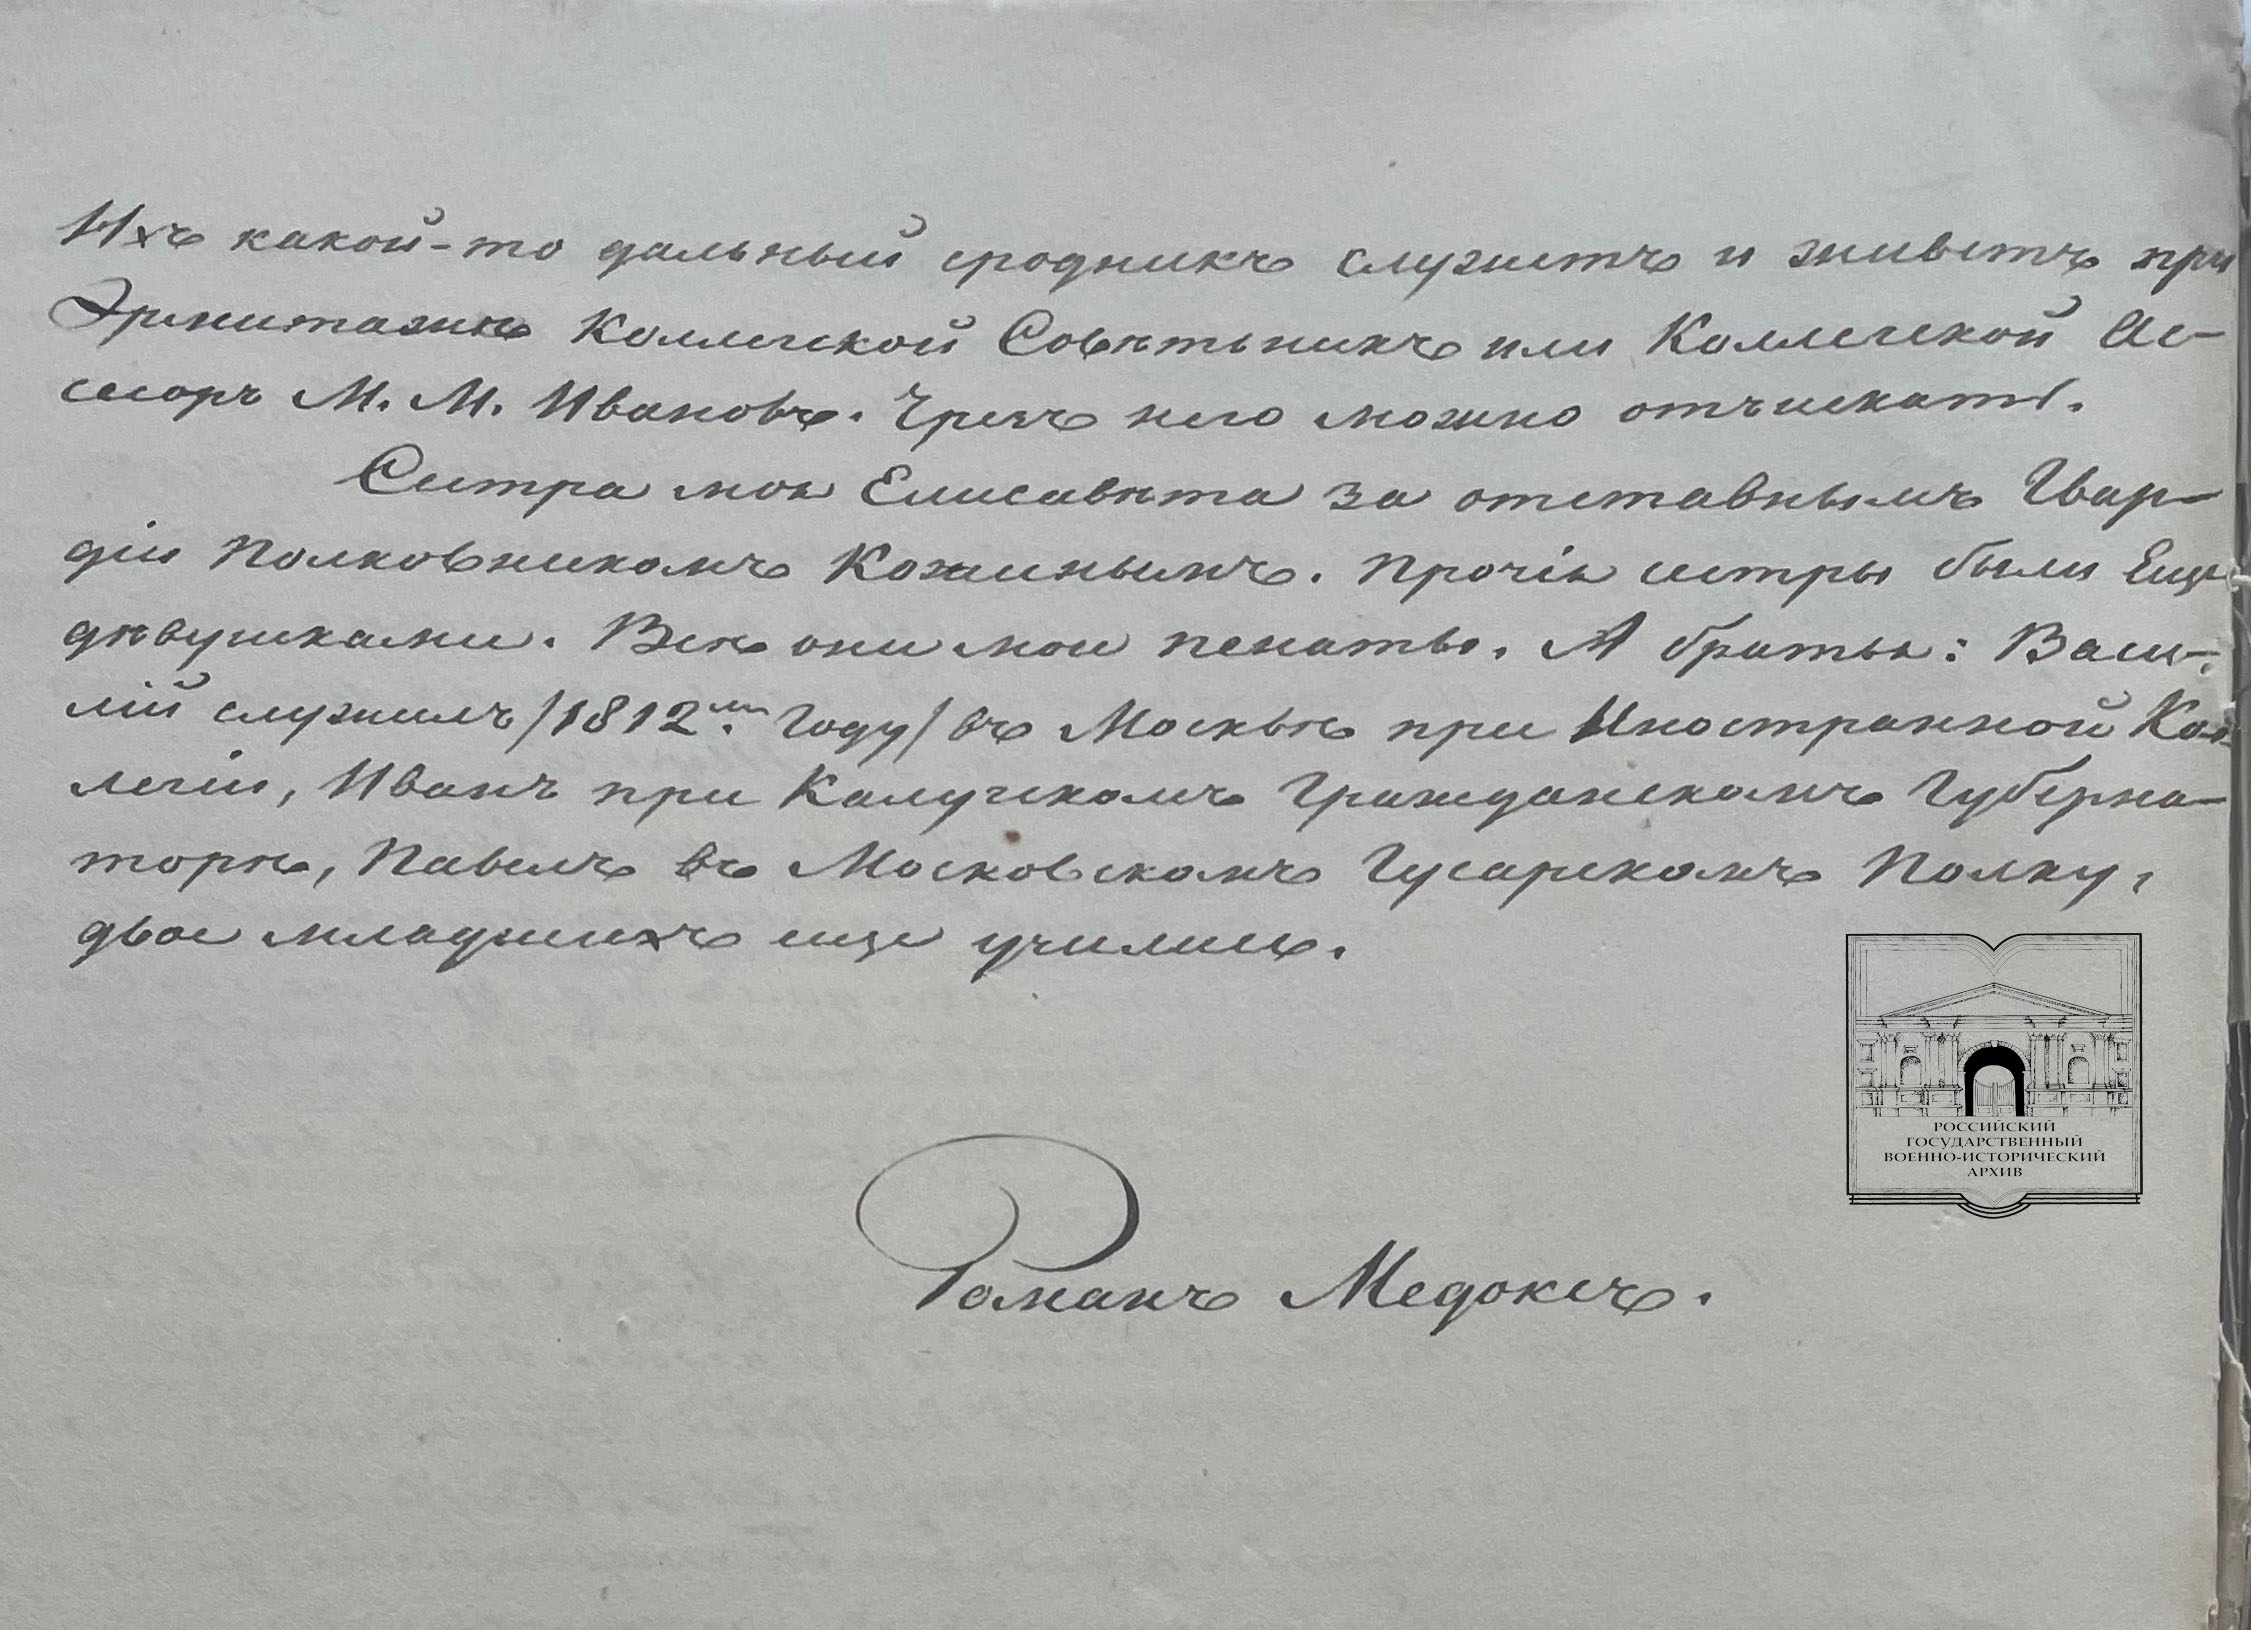 Ихъ какой-то дальный сродникъ служитъ и живетъ при
Эрмитажѣ Коллегской Совѣтьникъ или Коллегской Ас-
сесоръ М. М. Ивановъ. Чрезъ него можно отъискать.
Сестра моя Елисавѣта за отставнымъ Гвар-
діи Полковникомъ Кожинымъ. Прочія сестры были Еще
дѣвушками. Всѣ они мои пенаты. А братья: Васи-
лій служилъ /1812.мъ Году/ въ Москвѣ при Иностранной Кол-
легіи, Иванъ при Калугскомъ Гражданскомъ Губерна-
торѣ, Павелъ въ Московскомъ Гусарскомъ Полку,
двое младшихъ еще учились.
Романъ Медоксъ.
РОССИЙСКИЙ
ГОСУДАРСТВЕННЫЙ
ВОЕННО-ИСТОРИЧЕСКИЙ
АРХИВ